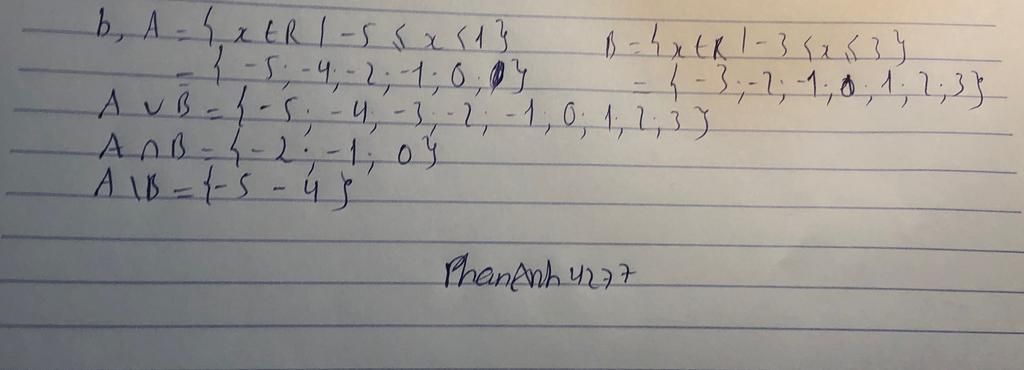 b, A = { x ∈ R | -5 ≤ x < 1 } B = { x ∈ R | -3 < x ≤ 3 }
= { -5 ; -4 ; -2 ; -1 ; 0 ; } = { -3 ; -2 ; -1 ; 0 ; 1 ; 2 ; 3 }
A ∪ B = { -5 ; -4 ; -3 ; -2 ; -1 ; 0 ; 1 ; 2 ; 3 }
A ∩ B = { -2 ; -1 ; 0 }
A \ B = { -5 - 4 }
PhanAnh4277